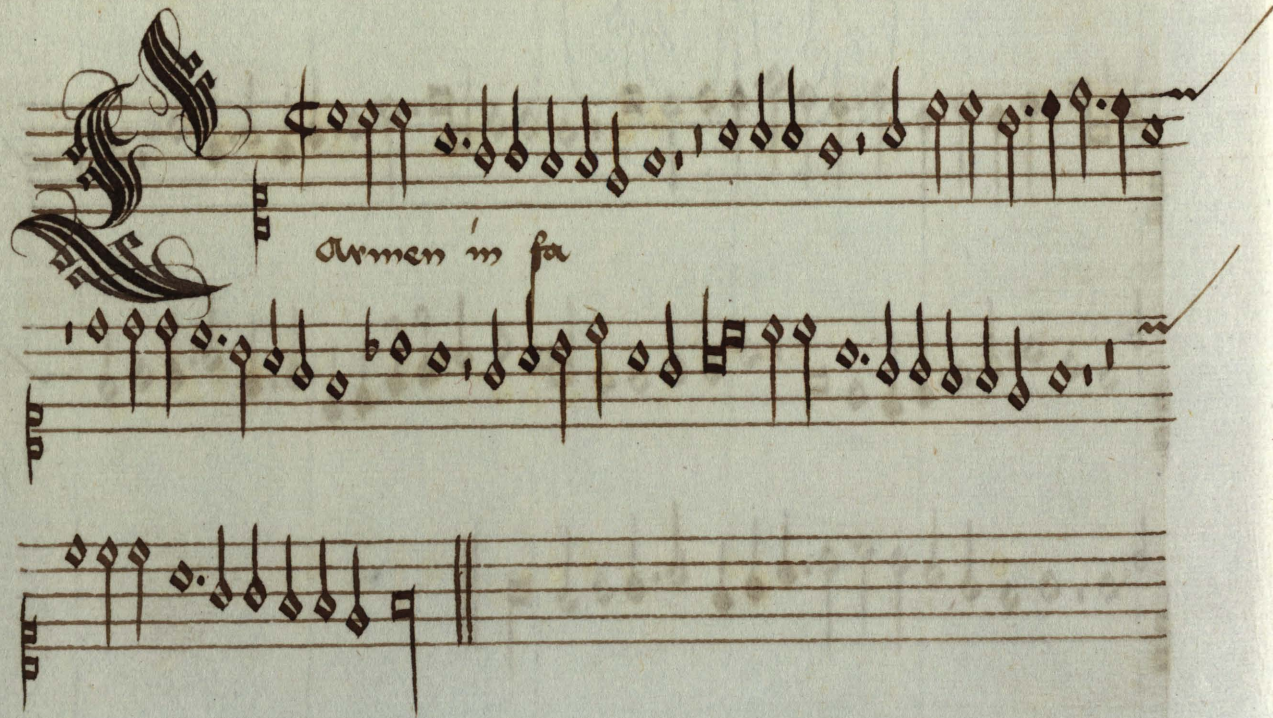 Carmen in fa